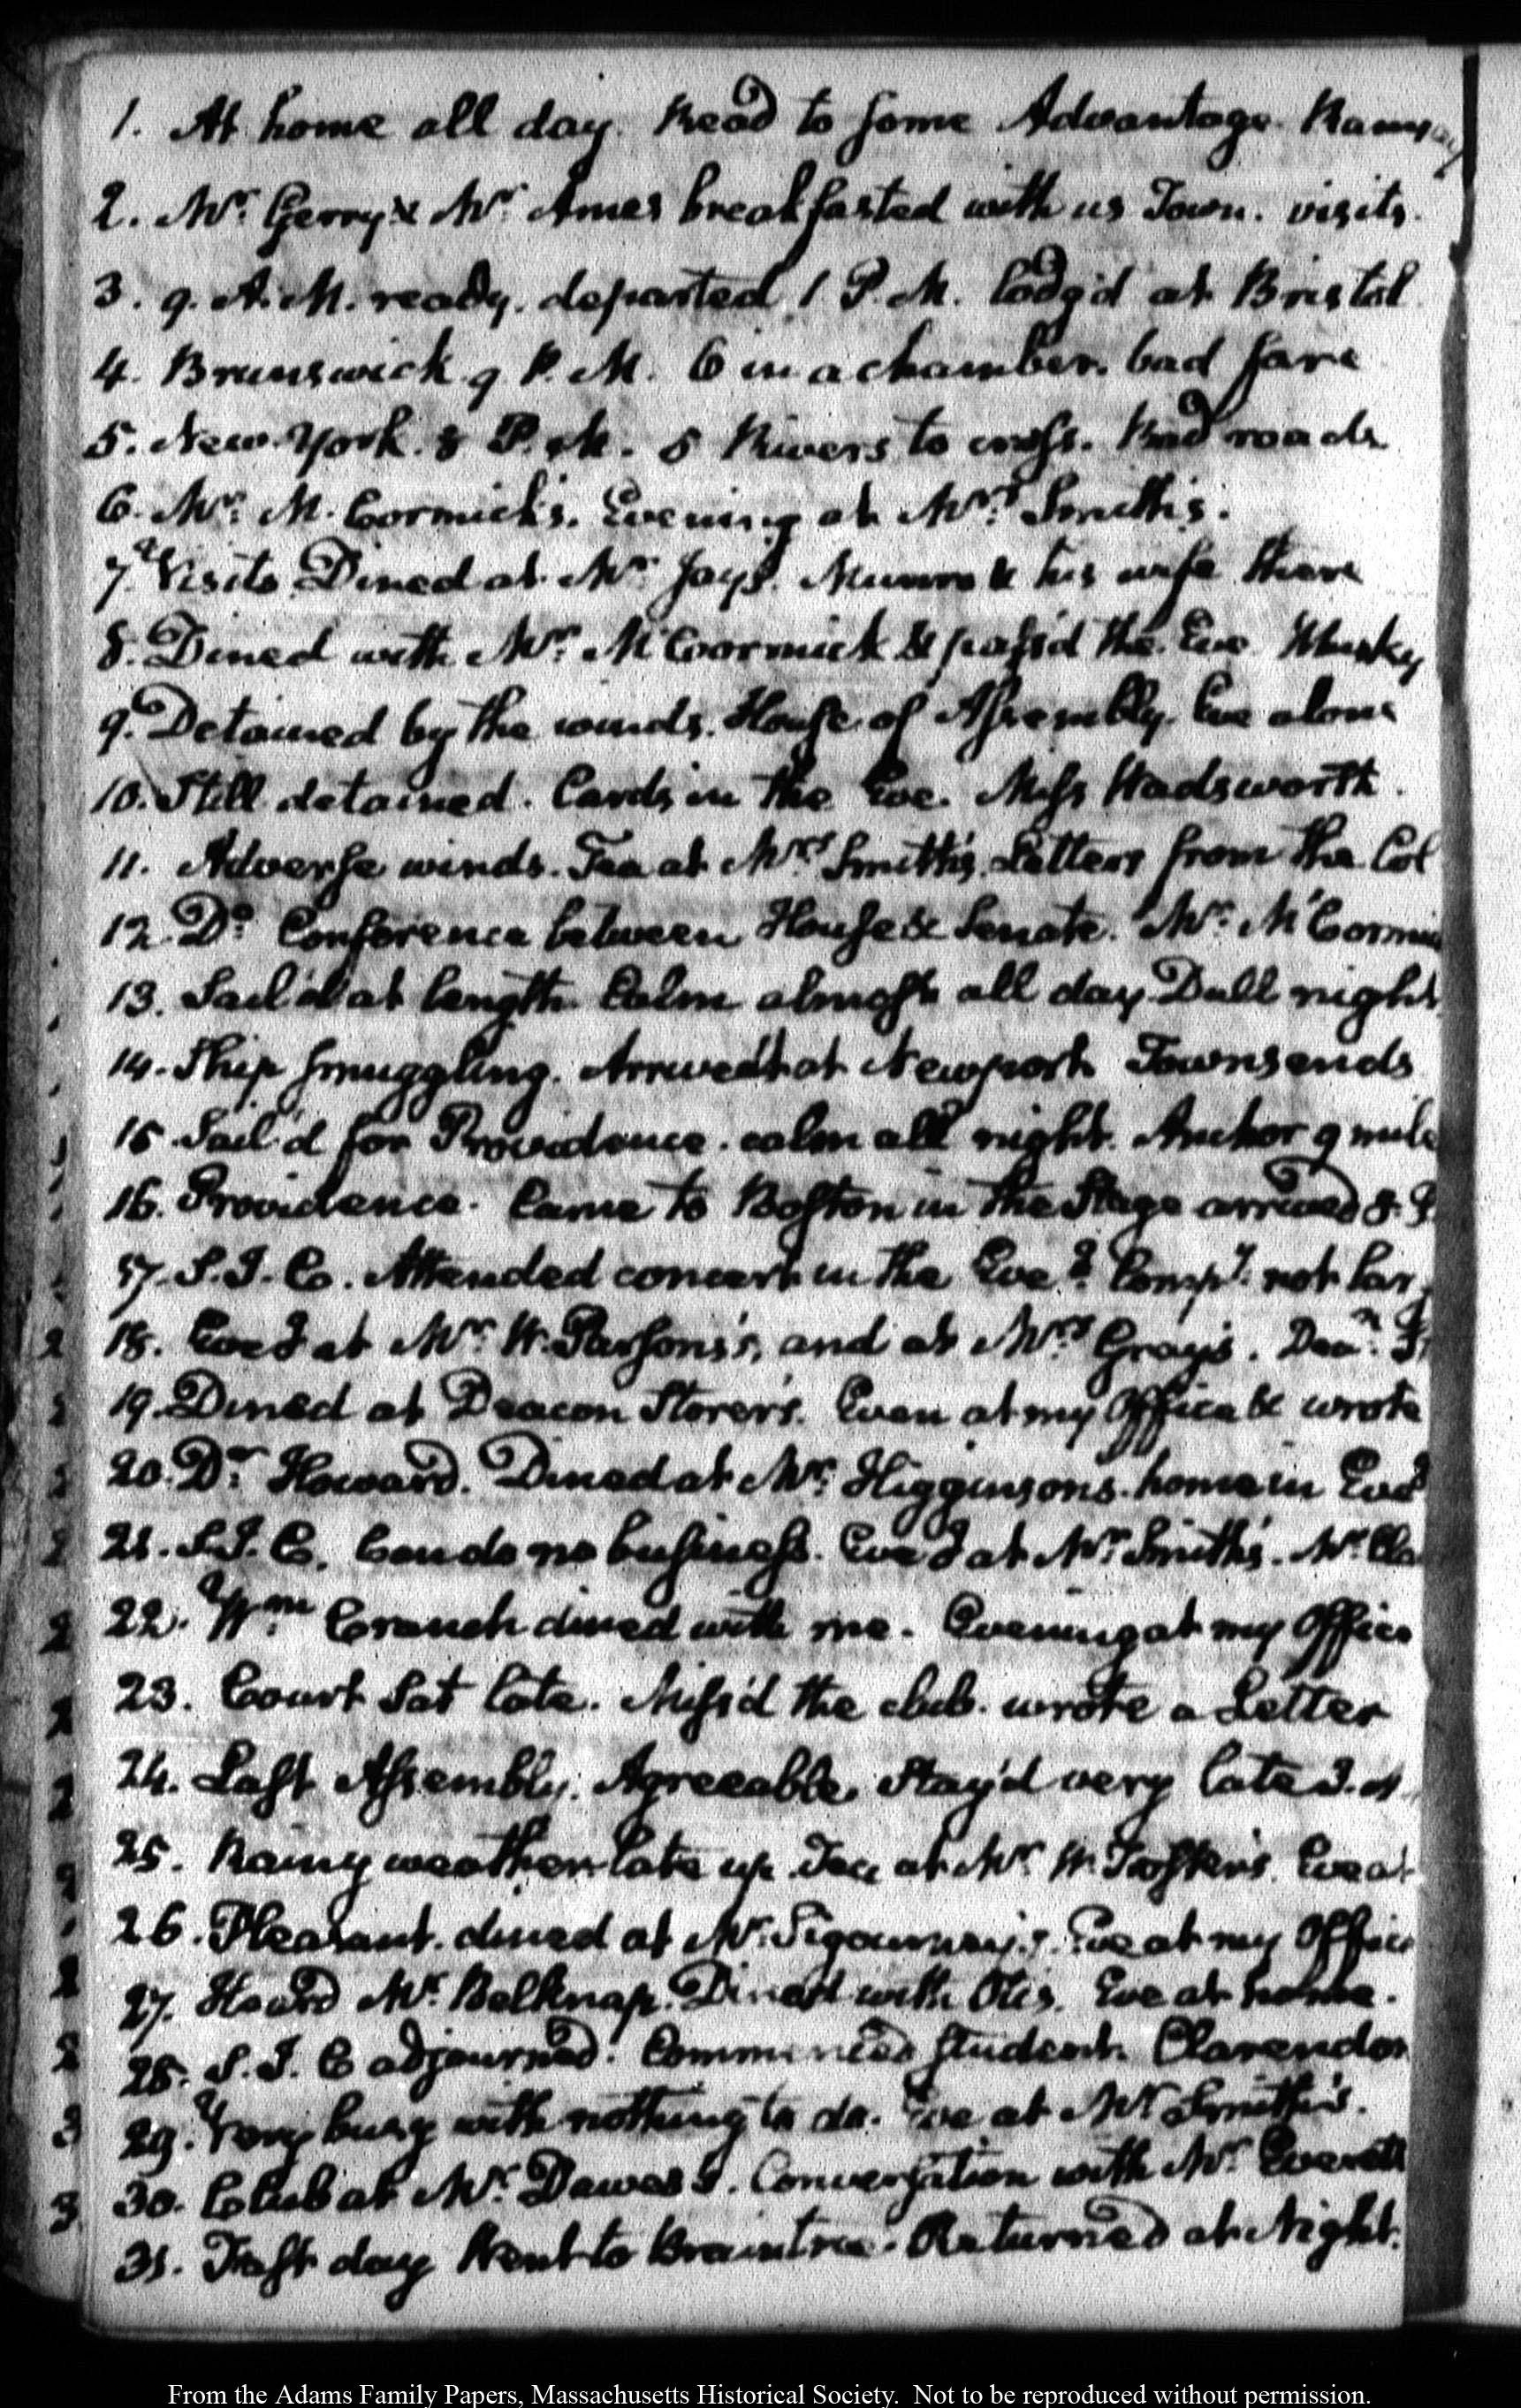 1. At home all day. Read to some Advantage. Ramsay
2. Mr. Gerry & Mr. Ames breakfasted with us Town. visits.
3. 9. A.M. ready. departed 1 P.M. lodg'd at Bristol
4. Brunswick 9 P.M. 6 in a chamber. bad fare
5. New York. 8 P.M. 5 Rivers to cross. Bad roads
6. Mr. McCormick's. Evening at Mrs. Smith's.
7. Visits. Dined at Mr. Jay's. Munro & his wife there
8. Dined with Mr. McCormick & pass'd the Eve. Whisky
9. Detained by the winds. House of Assembly. Eve alone
10. Still detained. Cards in the Eve. Miss Wadsworth.
11. Adverse winds. Tea at Mrs. Smith's. Letters from the Col
12. Do. Conference between House & Senate. Mr. McCormi
13. Sail'd at length. Calm almost all day. Dull night
14. Ship smuggling. Arrived at Newport Townsends
15. Sail'd for Providence. calm all night. Anchor 9 mile
16. Providence. Came to Boston in the Stage arrived 8. P.
17. S.J.C. Attended concert in the Eveg. Compy. not lar
18. Eveg at Mr. W. Parsons's, and at Mrs. Gray's. Dean.
19. Dined at Deacon Storer's. Even at my Office & wrote
20. Dr. Howard. Dined at Mr. Higginsons. home in Eveg
21. S.J.C. Cou do no business. Eveg at Mr. Smith's. Mr. Cla
22. Wm. Cranch dined with me. Evening at my Office
23. Court Sat late. Miss'd the club. wrote a Letter
24. Last Assembly. Agreeable. Stay'd very late
25. Rainy weather late up. Tea at Mr. W. Foster's. Eve at
26. Pleasant. dined at Mr. Sigourney's. Eve at my Office
27. Heard Mr. Belknap. Dined with Otis. Eve at home.
28. S.J.C adjourned. Commenced student. Clarendon
29. Very busy with nothing to do. Eve at Mr. Smith's.
30. Club at Mr. Dawes's. Conversation with Mr. Everett
31. Fast day Went to Braintree. Returned at Night.
From the Adams Family Papers, Massachusetts Historical Society. Not to be reproduced without permission.